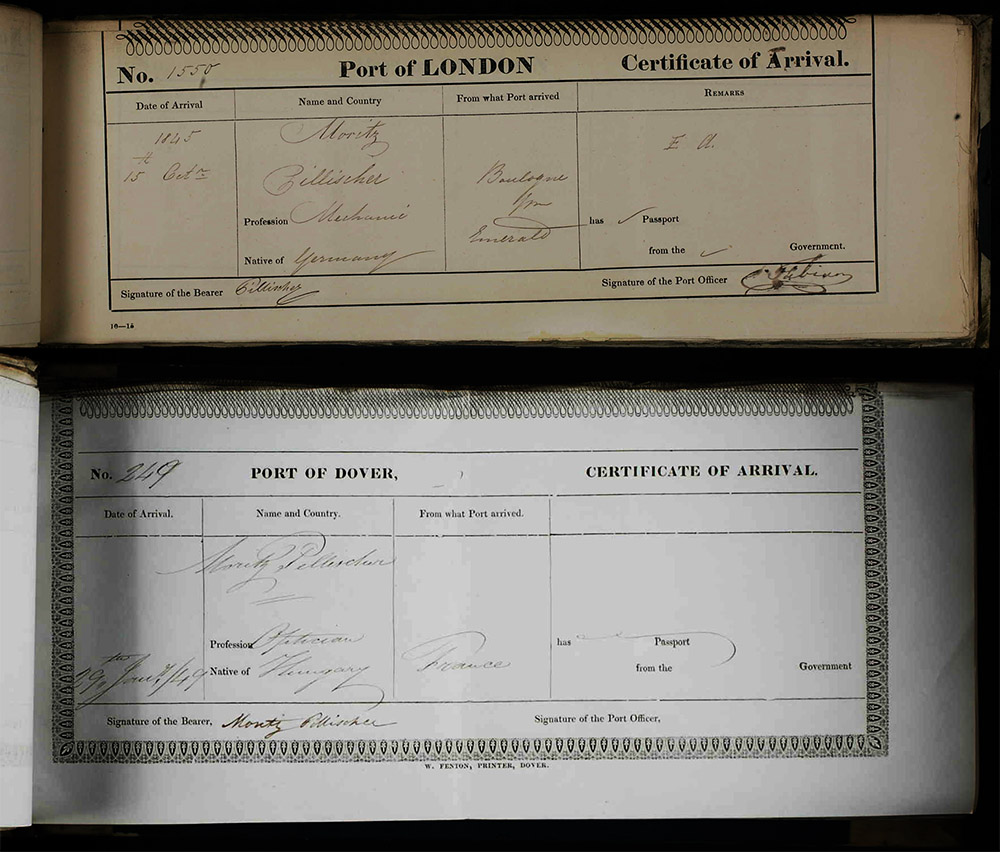 No. 1550 Port of LONDON Certificate of Arrival.
Date of Arrival Name and Country From what Port arrived REMARKS
1845 Moritz E A.
15th Octr Pillischer Boulogne
pm
Profession Mechanic Emerald has Passport
Native of Germany from the Government.
Signature of the Bearer Pillischer Signature of the Port Officer
10—15
No. 249 PORT OF DOVER, CERTIFICATE OF ARRIVAL.
Date of Arrival. Name and Country. From what Port arrived.
Moritz Pillischer
Profession Optician has Passport
29th Jany/49 Native of Hungary France from the Government
Signature of the Bearer, Moritz Pillischer Signature of the Port Officer,
W. FENTON, PRINTER, DOVER.